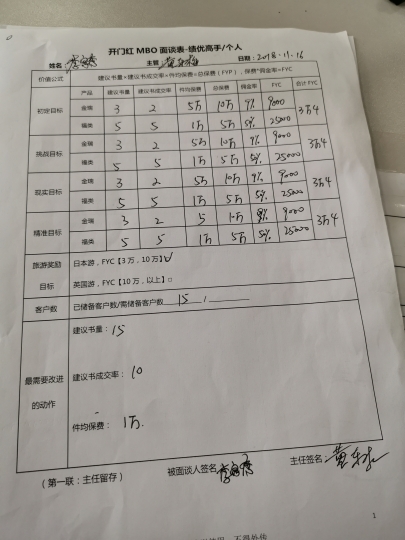 开门红 MBO 面谈表-绩优高手/个人
姓名 主管 日期：2018.11.16
价值公式 建议书量*建议书成交率*件均保费=总保费（FYP），保费*佣金率=FYC
产品 建议书量 建议书成交率 件均保费 总保费 佣金率 FYC 合计 FYC
初定目标 金瑞 3 2 5万 10万 9% 9000 3万4
福类 5 5 1万 5万 50% 25000
挑战目标 金瑞 3 2 5万 10万 9% 9000 3万4
福类 5 5 1万 5万 50% 25000
现实目标 金瑞 3 2 5万 10万 9% 9000 3万4
福类 5 5 1万 5万 50% 25000
精准目标 金瑞 3 2 5 10万 9% 9000 3万4
福类 5 5 1万 5万 50% 25000
旅游奖励 日本游，FYC【3 万，10 万】☑
目标 英国游，FYC【10 万，以上】□
客户数 已储备客户数/需储备客户数 15 /
建议书量：15
最需要改进
的动作
建议书成交率：10
件均保费：1万.
（第一联：主任留存） 被面谈人签名： 主任签名：
1